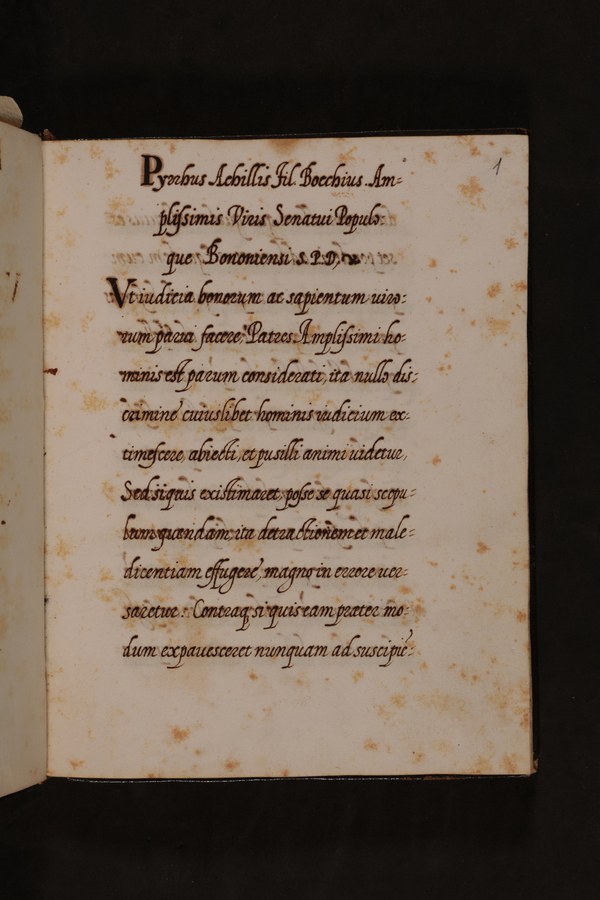 1
Pyrrhus Achillis Fil. Bocchius Am=
plissimis Viris Senatui Populo=
que Bononiensi S. P. D.
Vt iudicia bonorum ac sapientum uiro=
rum parui facere, Patres Amplissimi ho=
minis est parum considerati, ita nullo dis=
crimine cuiuslibet hominis iudicium ex=
timescere abiecti, et pusilli animi uidetur,
Sed si quis existimaret, posse se quasi scopu=
lum quendam, ita detractionem et male=
dicentiam effugere, magno in errore uer=
saretur: Contraq, si quis eam praeter mo=
dum expauesceret nunquam ad suscipie=